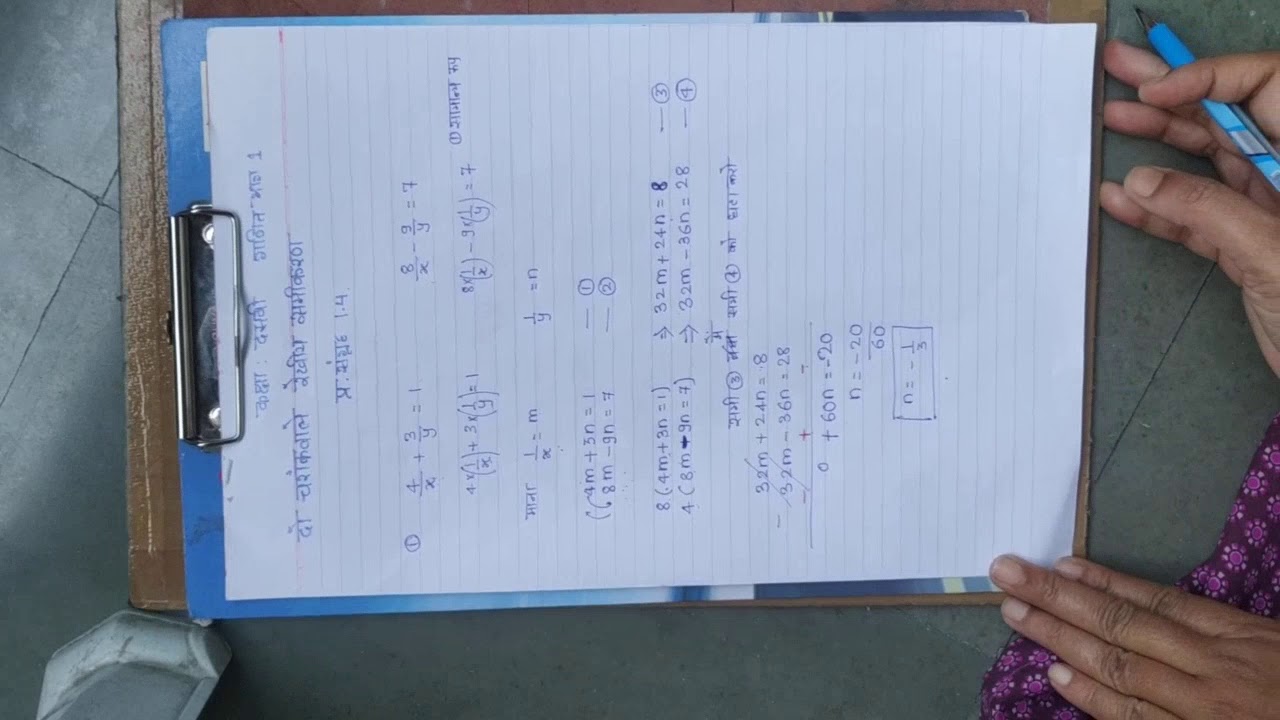 कक्षा : दसवी गणित भाग 1
दो चरांकवाले रेखीय समीकरण
प्र. संग्रह 1.4
① 4/x + 3/y = 1 8/x - 9/y = 7
4×(1/x) + 3×(1/y) = 1 8×(1/x) - 9×(1/y) = 7 ① सामान्य रूप
माना 1/x = m 1/y = n
4m + 3n = 1 — ①
8m - 9n = 7 — ②
8 (4m + 3n = 1) ⇒ 32m + 24n = 8 — ③
4 (8m - 9n = 7) ⇒ 32m - 36n = 28 — ④
समी ③ में समी ④ को घटा करो
32m + 24n = 8
- 32m - 36n = 28
- + -
0 + 60n = -20
n = -20/60
n = - 1/3